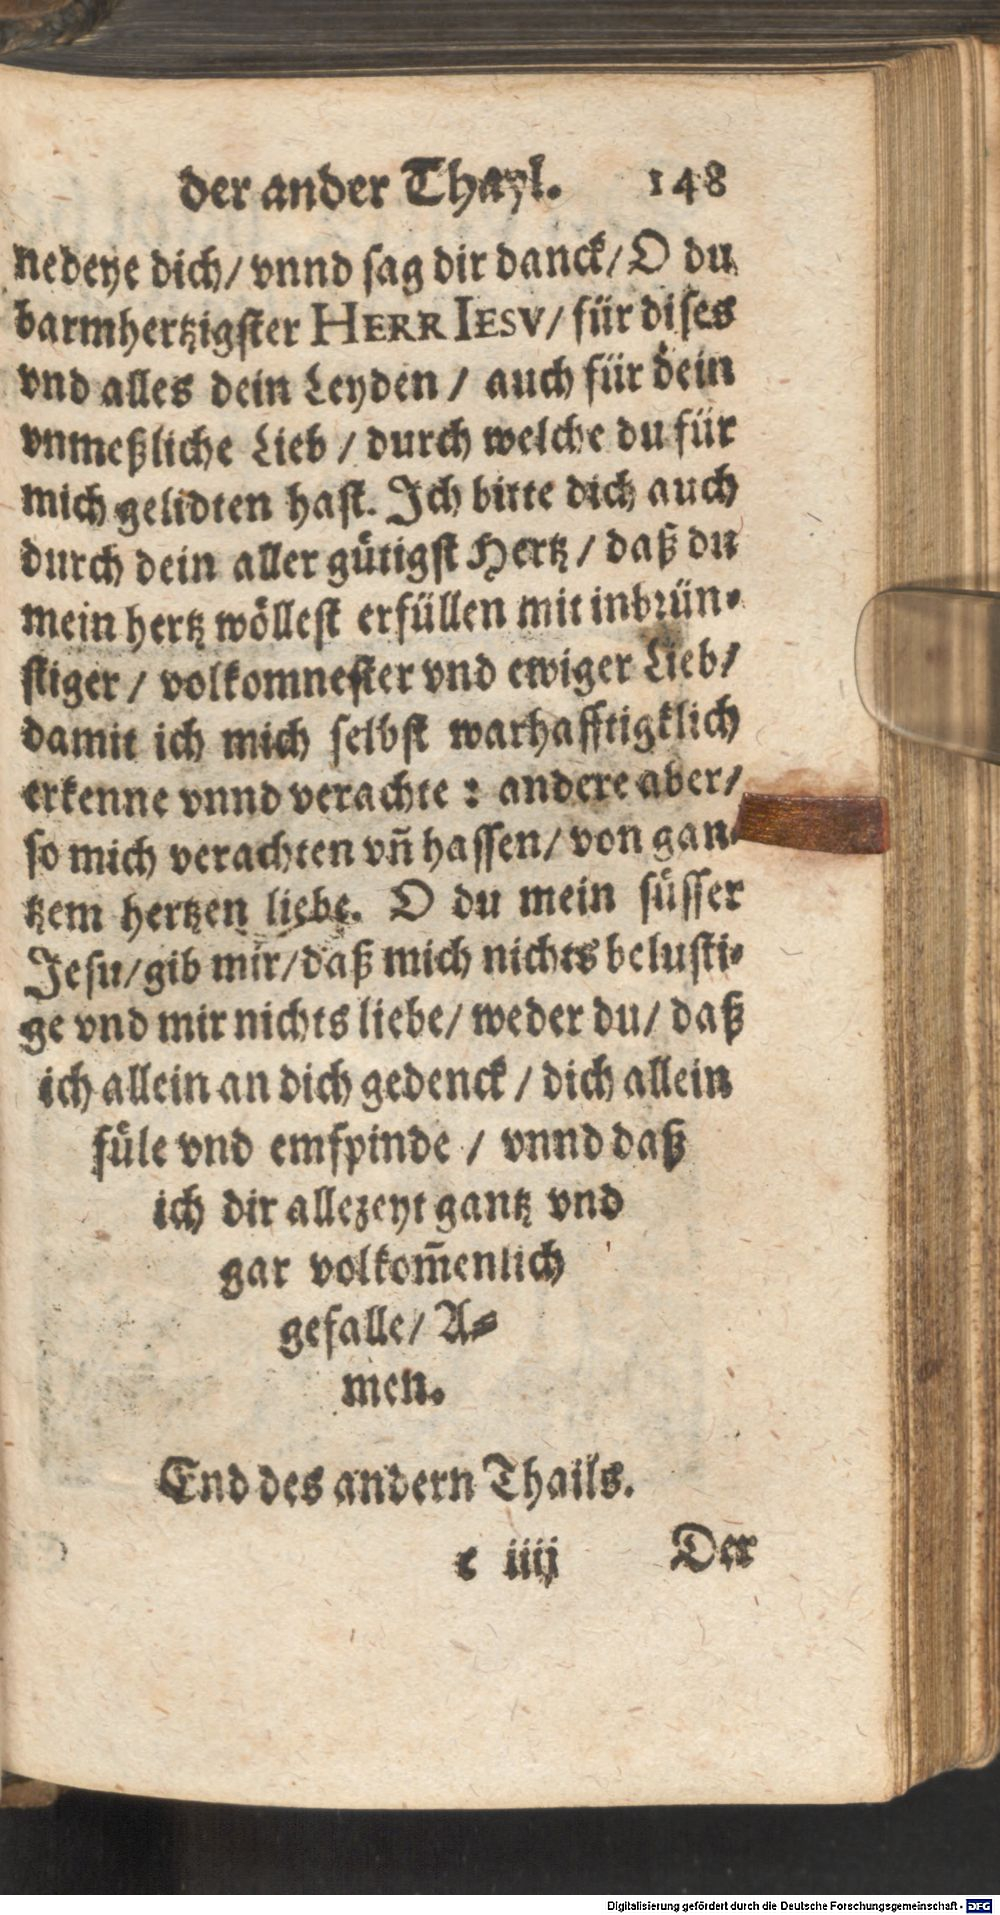 der ander Thayl. 148
nedeye dich/ vnnd sag dir danck/ O du
barmhertzigster HERR IESV/ für dises
vnd alles dein Leyden / auch für dein
vnmeßliche Lieb / durch welche du für
mich gelidten hast. Ich bitte dich auch
durch dein aller gütigst Hertz / daß du
mein hertz wöllest erfüllen mit inbrün-
stiger / volkomnester vnd ewiger Lieb/
damit ich mich selbst warhafftigklich
erkenne vnnd verachte : andere aber/
so mich verachten vñ hassen/ von gan-
tzem hertzen liebe. O du mein süsser
Jesu/ gib mir/ daß mich nichts belusti-
ge vnd mir nichts liebe/ weder du/ daß
ich allein an dich gedenck / dich allein
füle vnd emfpinde / vnnd daß
ich dir allezeyt gantz vnd
gar volkom̃enlich
gefalle/ A-
men.
End des andern Thails.
t iiij Der
Digitalisierung gefördert durch die Deutsche Forschungsgemeinschaft - DFG